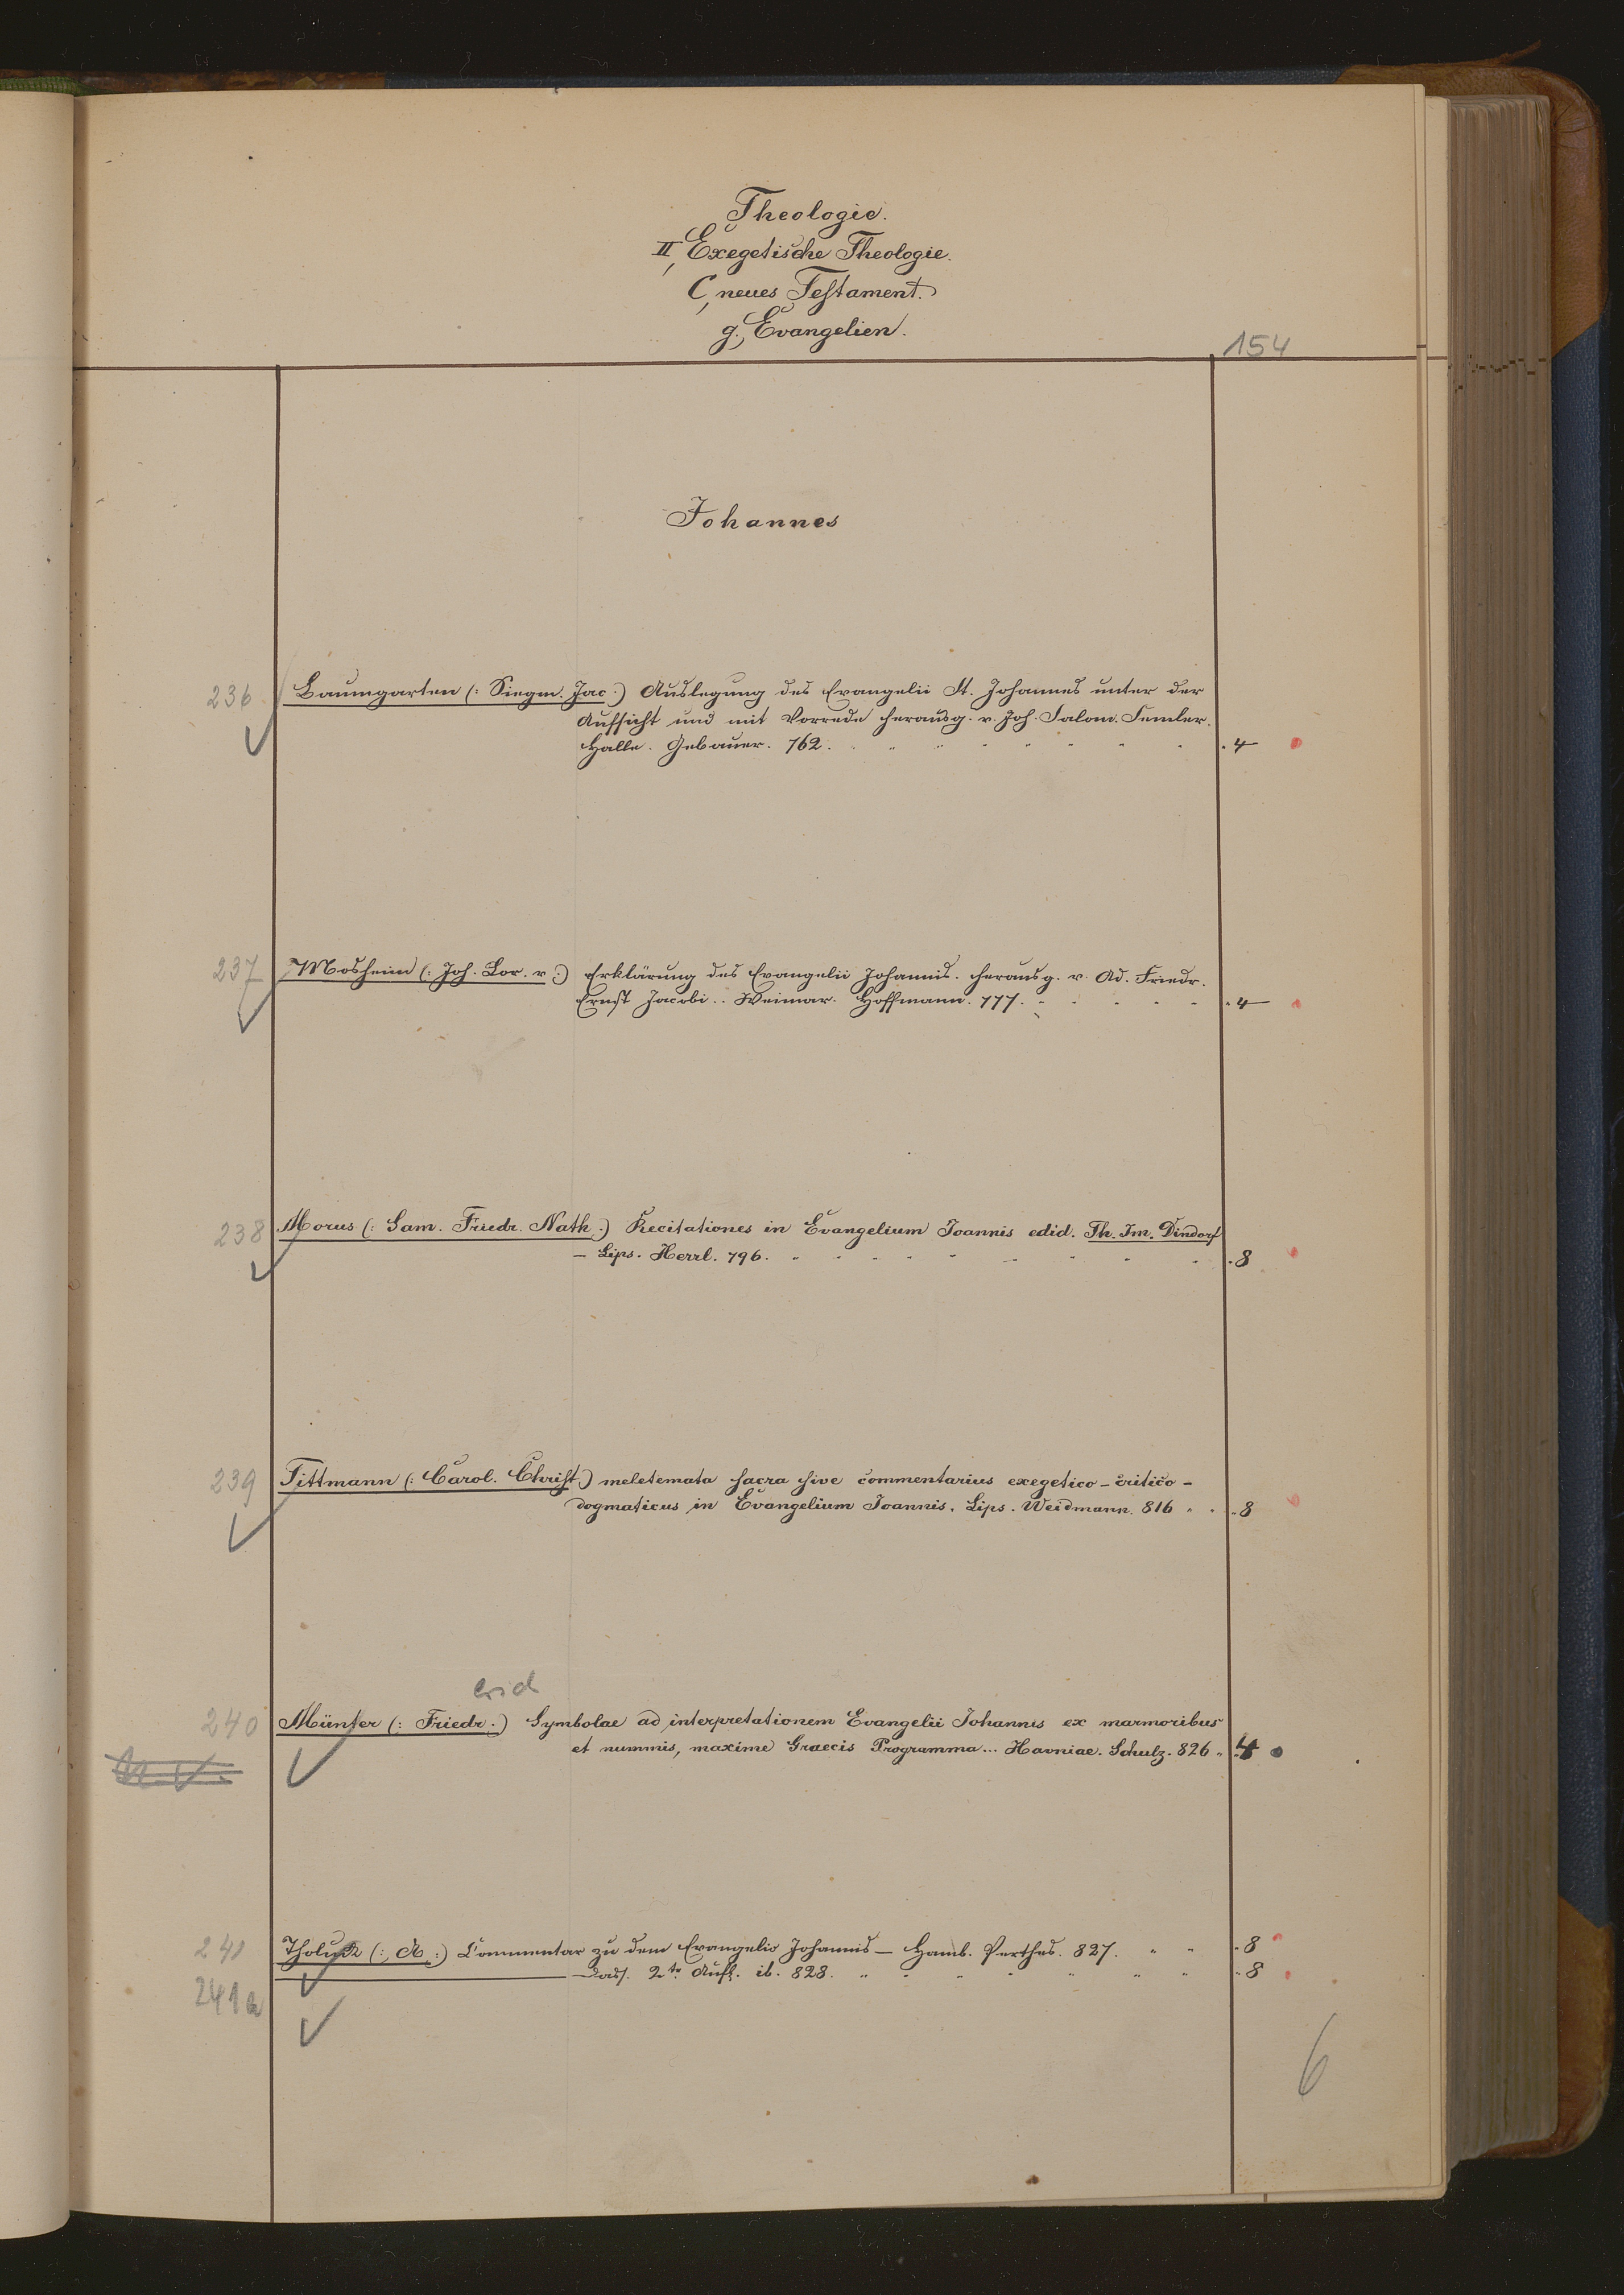 Theologie.
II, Exegetische Theologie.
C, neues Testament.
g., Evangelien.
154
Johannes
236 Baumgarten (: Siegm. Jac :) Auslegung des Evangelii St. Johannes unter der
Aufsicht und mit Vorrede herausg. v. Joh. Salom. Semler.
Halle. Gebauer. 762. . 4
237 Mosheim (: Joh. Lor. v :) Erklärung des Evangelii Johannis. herausg. v. Ad. Friedr.
Ernst Jacobi .. Weimar. Hoffmann. 777. . 4
238 Morus (: Sam. Friedr. Nath :) Recitationes in Evangelium Joannis edid. Th. Im. Dindorf
– Lips. Herrl. 796. . 8
239 Tittmann (: Carol. Christ :) meletemata sacra sive commentarius exegetico – critico –
dogmaticus in Evangelium Joannis. Lips. Weidmann. 816 . 8
240 Münter (: Friedr. :) Symbolae ad interpretationem Evangelii Johannis ex marmoribus
et nummis, maxime Graecis Programma ... Havniae. Schulz. 826 . 4
241 Tholuck (: A :) Commentar zu dem Evangelio Johannis – Hamb. Perthes. 827. . 8
241a Dass. 2te Aufl. ib. 828. . 8
6